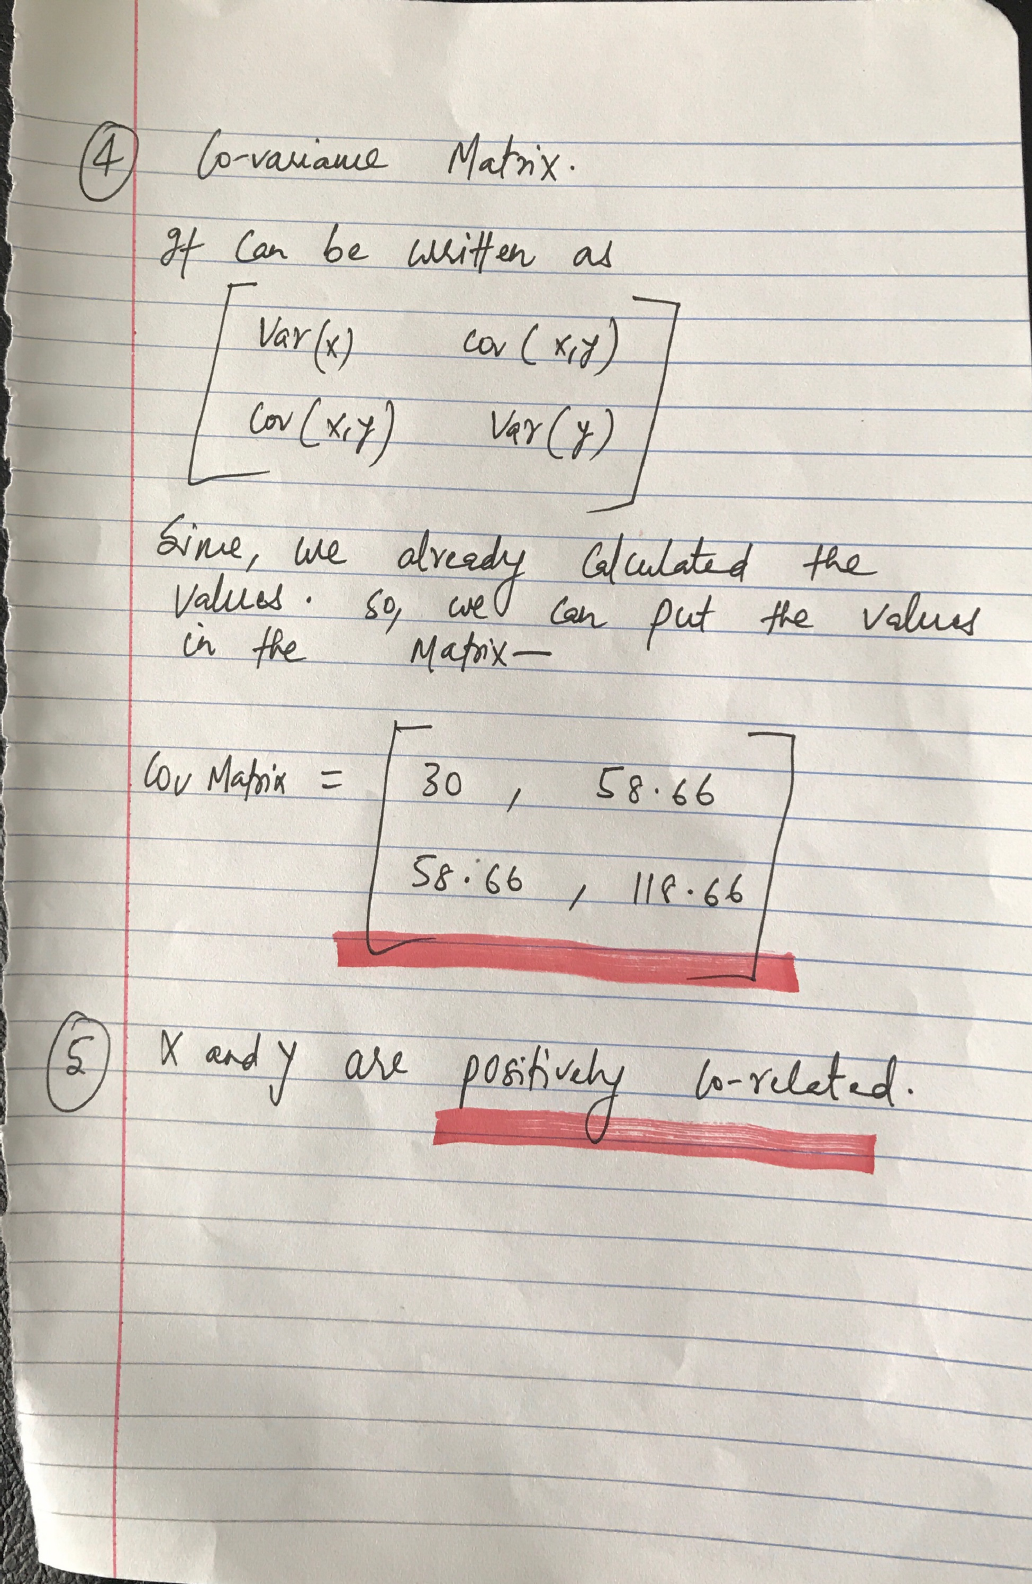 ④ Co-variance Matrix.
It can be written as
Var(x) cov(x,y)
Cov(x,y) Var(y)
Since, we already calculated the
values. so, we can put the values
in the Matrix—
Cov Matrix = 30 , 58.66
58.66 , 118.66
⑤ X and y are positively Co-related.